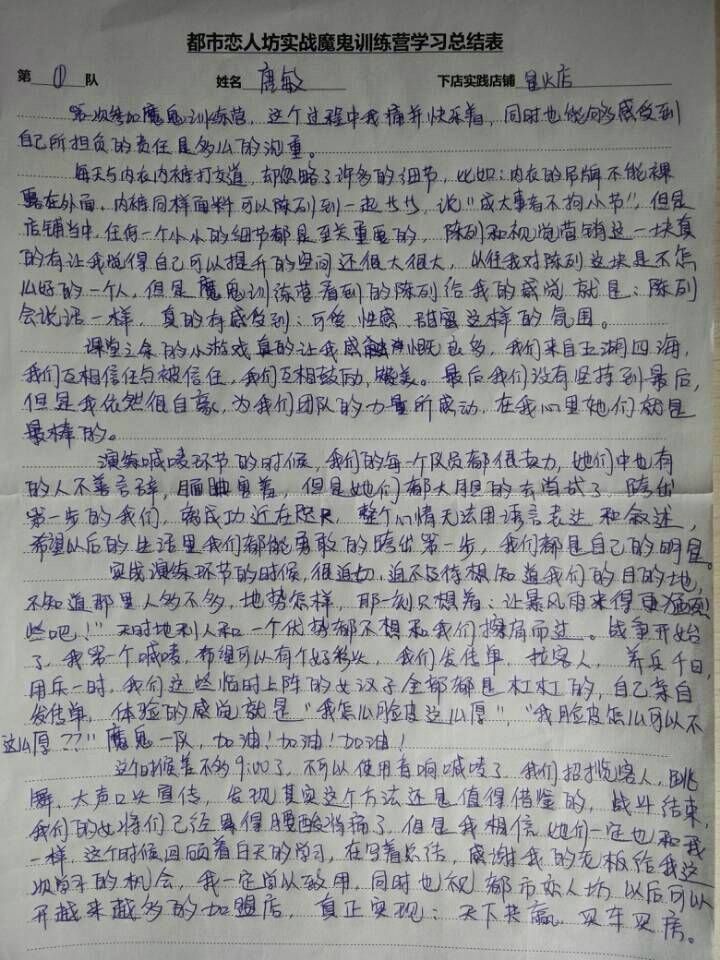 都市恋人坊实战魔鬼训练营学习总结表
第 ① 队 姓名 唐敏 下店实践店铺 星火店
第一次参加魔鬼训练营，这个过程中我痛并快乐着，同时也能够感受到
自己所担负的责任是多么的沉重。
每天与内衣内裤打交道，却忽略了许多的细节，比如：内衣的吊牌不能裸
露在外面，内裤同样面料可以陈列到一起等等，说"成大事者不拘小节"，但是
店铺当中，任何一个小小的细节都是至关重要的，陈列和视觉营销这一块真
的有让我觉得自己可以提升的空间还很大很大，以往我对陈列这块是不怎
么好的一个人，但是魔鬼训练营看到的陈列给我的感觉就是：陈列
会说话一样，真的有感受到：可爱 性感 甜蜜这样的氛围。
课堂之余的小游戏真的让我感触慨良多，我们来自五湖四海，
我们互相信任与被信任，我们互相鼓励，赞美。最后我们没有坚持到最后，
但是我依然很自豪，为我们团队的力量所感动，在我心里她们就是
最棒的。
演练喊麦环节的时候，我们的每一个队员都很努力，她们中也有
的人不善言辞，腼腆害羞，但是她们都大胆的去尝试了，跨出
第一步的我们，离成功近在咫尺，整个心情无法用语言表达和叙述，
希望以后的生活里我们都能勇敢的跨出第一步，我们都是自己的明星。
实战演练环节的时候，很迫切，迫不及待想知道我们的目的地，
不知道那里人多不多，地势怎样，那一刻只想着：让暴风雨来得更猛烈
些吧！"天时地利人和一个优势都不想和我们擦肩而过。战争开始
了，我第一个喊麦，希望可以有个好彩头，我们发传单，拉客人，养兵千日，
用兵一时，我们这些临时上阵的女汉子全部都是杠杠的，自己亲自
发传单，体验的感觉就是"我怎么脸皮这么厚"，"我脸皮怎么可以不
这么厚？？"魔鬼一队，加油！加油！加油！
这个时候差不多9:00了，不可以使用音响喊麦了，我们招揽客人，跳
舞，大声口头宣传，发现其实这个方法还是值得借鉴的，战斗结束，
我们的女将们已经累得腰酸背痛了，但是我相信她们一定也和我
一样，这个时候回顾着白天的学习，在写着总结，感谢我的老板给我这
次学习的机会，我一定学以致用，同时也祝都市恋人坊以后可以
开越来越多的加盟店，真正实现：天下共赢，买车买房。